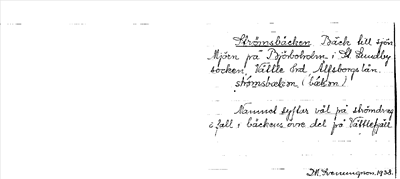 Strömsbäcken Bäck till sjön
Mjörn på Björboholm i St. Lundby
socken, Vättle hrd, Älfsborgs län.
strömsbækən (bækən)
Namnet syftar väl på strömdrag
o fall i bäckens övre del på Vättlefjäll
M. Svenungson. 1938.